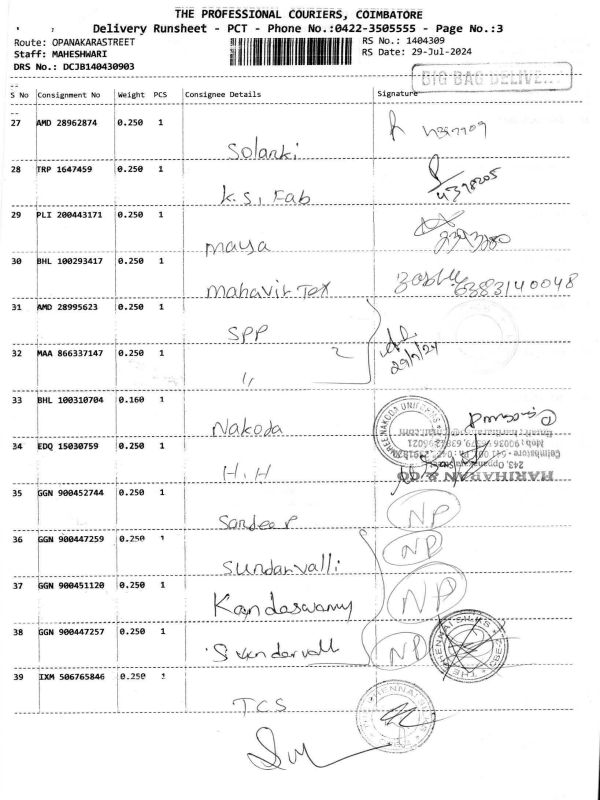 THE PROFESSIONAL COURIERS, COIMBATORE
Delivery Runsheet - PCT - Phone No.:0422-3505555 - Page No.:3
Route: OPANAKARASTREET
RS No.: 1404309
Staff: MAHESHWARI
RS Date: 29-Jul-2024
DRS No.: DCJB140430903
BIG BAG DELIVE...
S No Consignment No Weight PCS Consignee Details Signature
27 AMD 28962874 0.250 1
Solanki
28 TRP 1647459 0.250 1
K.S. Fab
4398205
29 PLI 200443171 0.250 1
Maya
30 BHL 100293417 0.250 1
Mahavir Tex
6383140048
31 AMD 28995623 0.250 1
SPP
2
29/7/24
32 MAA 866337147 0.250 1
"
33 BHL 100310704 0.160 1
Nakoda
SHREE NAKODA UNIFORMS
34 EDQ 15030759 0.250 1
H.H
HARIHARAN & CO
35 GGN 900452744 0.250 1
Sandeep
NP
36 GGN 900447259 0.250 1
Sundarvalli
NP
37 GGN 900451120 0.250 1
Kandaswamy
NP
38 GGN 900447257 0.250 1
Sundarvall
NP
THE CHENNAI SILKS
39 IXM 506765846 0.250 1
TCS